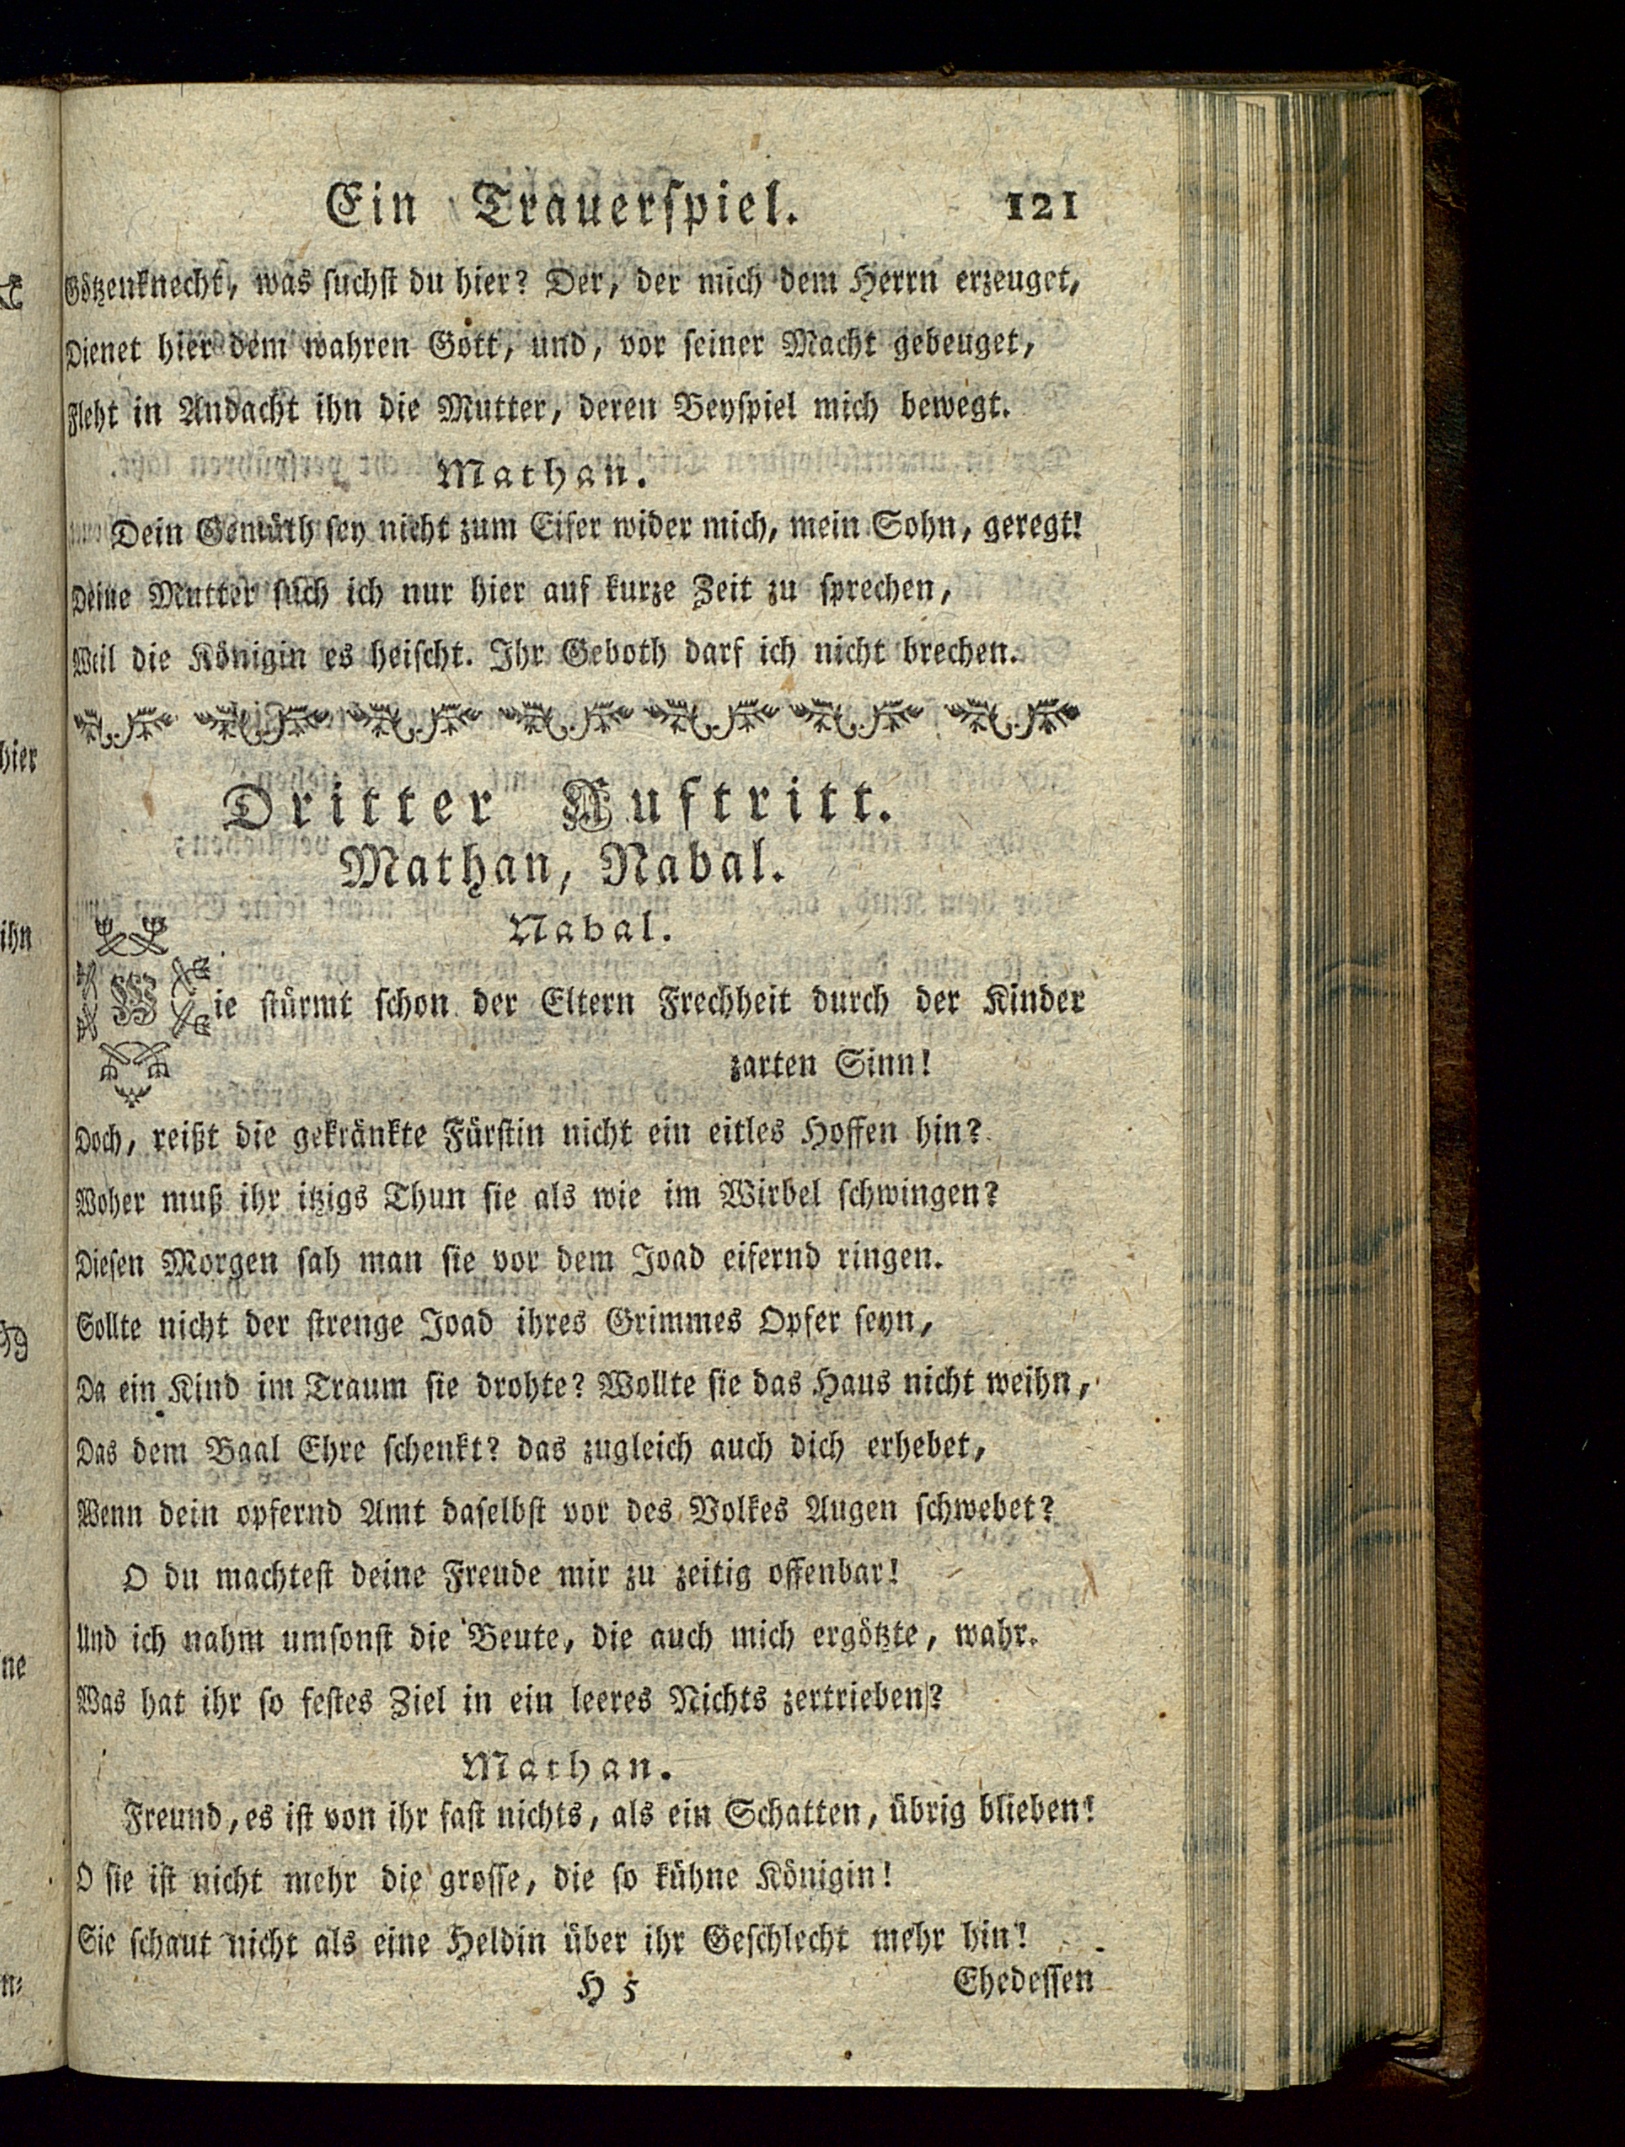 Ein Trauerſpiel. 121
Götzenknecht, was ſuchſt du hier? Der, der mich dem Herrn erzeuget,
Dienet hier dem wahren Gott, und, vor ſeiner Macht gebeuget,
Fleht in Andacht ihn die Mutter, deren Beyſpiel mich bewegt.
Mathan.
Dein Gemüth ſey nicht zum Eifer wider mich, mein Sohn, geregt!
Deine Mutter ſuch ich nur hier auf kurze Zeit zu ſprechen,
Weil die Königin es heiſcht. Ihr Geboth darf ich nicht brechen.
Dritter Auftritt.
Mathan, Nabal.
Nabal.
Wie ſtürmt ſchon der Eltern Frechheit durch der Kinder
zarten Sinn!
Doch, reißt die gekränkte Fürſtin nicht ein eitles Hoffen hin?
Woher muß ihr itzigs Thun ſie als wie im Wirbel ſchwingen?
Dieſen Morgen ſah man ſie vor dem Joad eifernd ringen.
Sollte nicht der ſtrenge Joad ihres Grimmes Opfer ſeyn,
Da ein Kind im Traum ſie drohte? Wollte ſie das Haus nicht weihn,
Das dem Baal Ehre ſchenkt? das zugleich auch dich erhebet,
Wenn dein opfernd Amt daſelbſt vor des Volkes Augen ſchwebet?
O du machteſt deine Freude mir zu zeitig offenbar!
Und ich nahm umſonſt die Beute, die auch mich ergötzte, wahr.
Was hat ihr ſo feſtes Ziel in ein leeres Nichts zertrieben?
Mathan.
Freund, es iſt von ihr faſt nichts, als ein Schatten, übrig blieben!
O ſie iſt nicht mehr die groſſe, die ſo kühne Königin!
Sie ſchaut nicht als eine Heldin über ihr Geſchlecht mehr hin!
H 5 Ehedeſſen